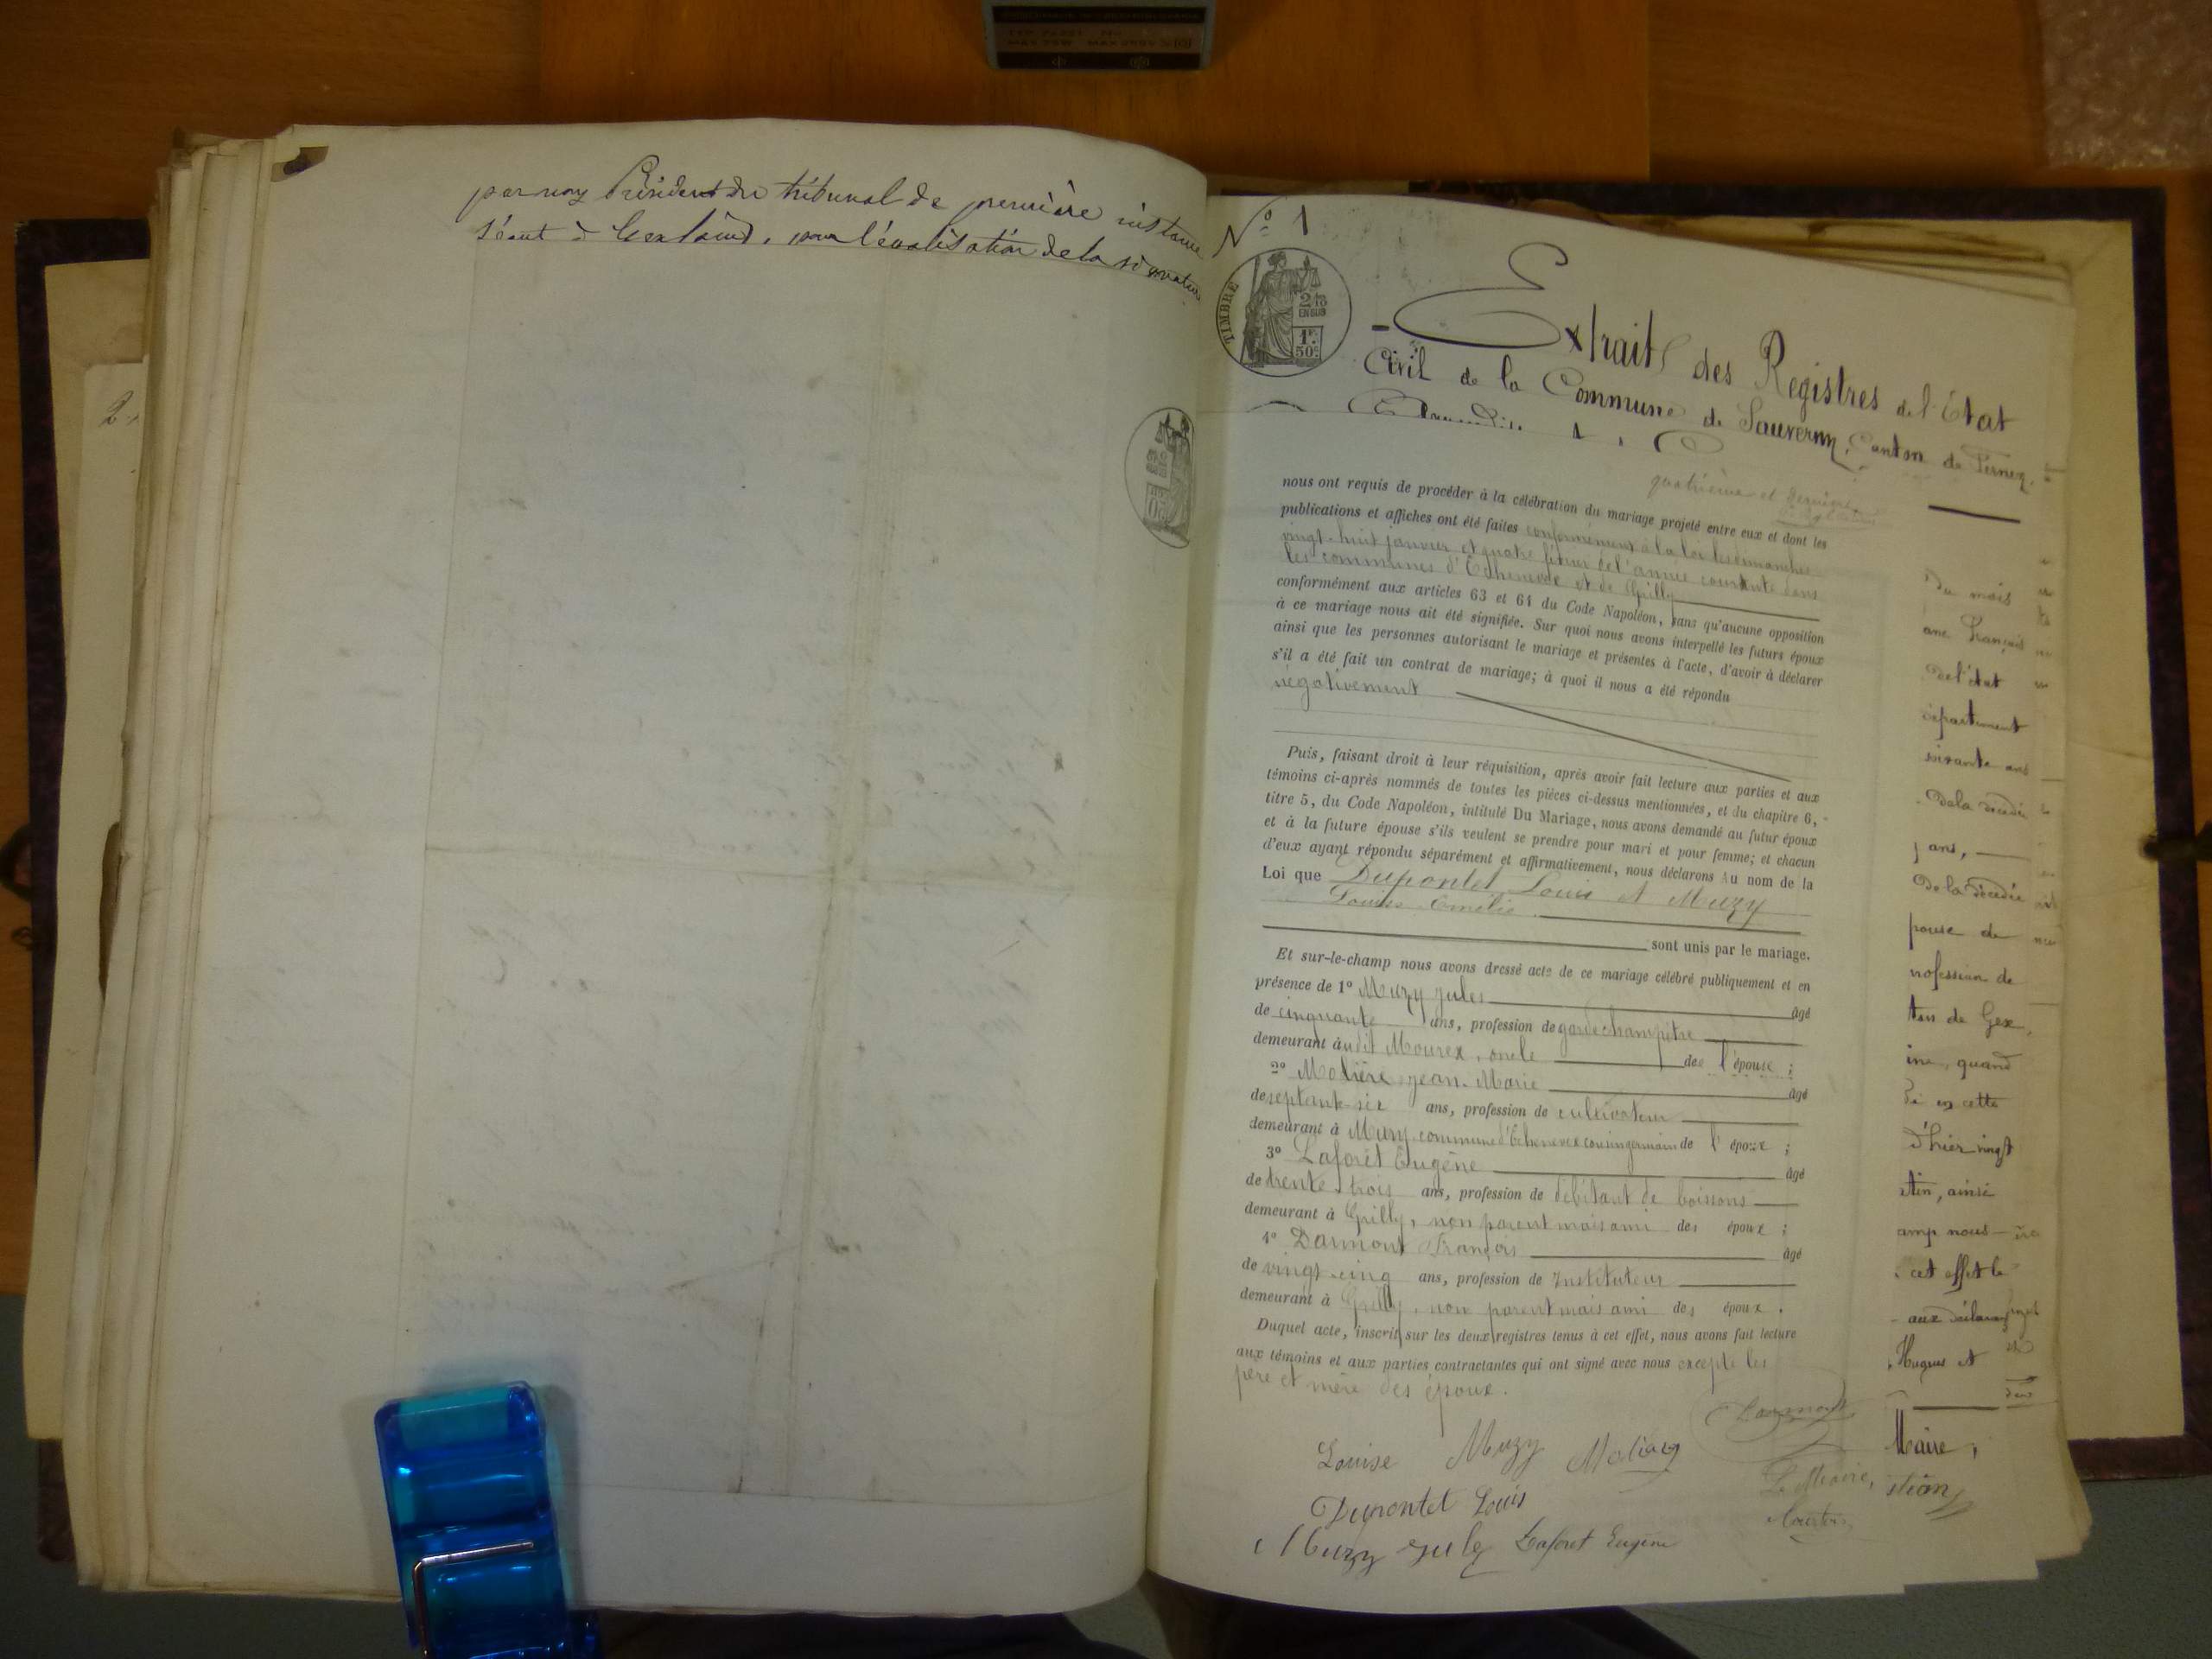 par nous Président du tribunal de première instance
séant à Gex (ain), pour légalisation de la signature
2
N° 1
TIMBRE
2/10
EN SUS
1F
50c
Extrait des Registres de l'Etat
Civil de la Commune de Sauverny, Canton de Ferney
quatrième et dernière
nous ont requis de procéder à la célébration du mariage projeté entre eux et dont les
publications et affiches ont été faites conformément à la loi les dimanches
vingt-huit janvier et quatre février de l'année courante dans
les communes d'Echenevex et de Grilly
conformément aux articles 63 et 64 du Code Napoléon, sans qu'aucune opposition
à ce mariage nous ait été signifiée. Sur quoi nous avons interpellé les futurs époux
ainsi que les personnes autorisant le mariage et présentes à l'acte, d'avoir à déclarer
s'il a été fait un contrat de mariage; à quoi il nous a été répondu
négativement
Puis, faisant droit à leur réquisition, après avoir fait lecture aux parties et aux
témoins ci-après nommés de toutes les pièces ci-dessus mentionnées, et du chapitre 6,
titre 5, du Code Napoléon, intitulé Du Mariage, nous avons demandé au futur époux
et à la future épouse s'ils veulent se prendre pour mari et pour femme; et chacun
d'eux ayant répondu séparément et affirmativement, nous déclarons Au nom de la
Loi que Dupontet Louis et Muzy
Louise Emélie
sont unis par le mariage.
Et sur-le-champ nous avons dressé acte de ce mariage célébré publiquement et en
présence de 1° Muzy Jules âgé
de cinquante ans, profession de garde champêtre
demeurant à udit Mourex, oncle de l'épouse ;
2° Molière Jean-Marie âgé
de septante-six ans, profession de cultivateur
demeurant à Mury commune d'Echenevex cousin germain de l'épouse ;
3° Laforêt Eugène âgé
de trente-trois ans, profession de débitant de boissons
demeurant à Grilly, non parent mais ami des époux ;
4° Darmont François âgé
de vingt-cinq ans, profession de Instituteur
demeurant à Grilly, non parent mais ami des époux.
Duquel acte, inscrit sur les deux registres tenus à cet effet, nous avons fait lecture
aux témoins et aux parties contractantes qui ont signé avec nous excepté les
père et mère des époux.
Darmont
Louise Muzy
Dupontet Louis
Le Maire,
Muzy Jules Laforet Eugène
Du mois
ane François
de l'état
département
soixante ans
De la décédée
ans,
De la décédée
pouse de
rofession de
ton de Gex,
ine, quand
di en cette
d'hier vingt
tin, ainsi
amp nous
cet effet le
aux déclarans
Hugues et
Maire,